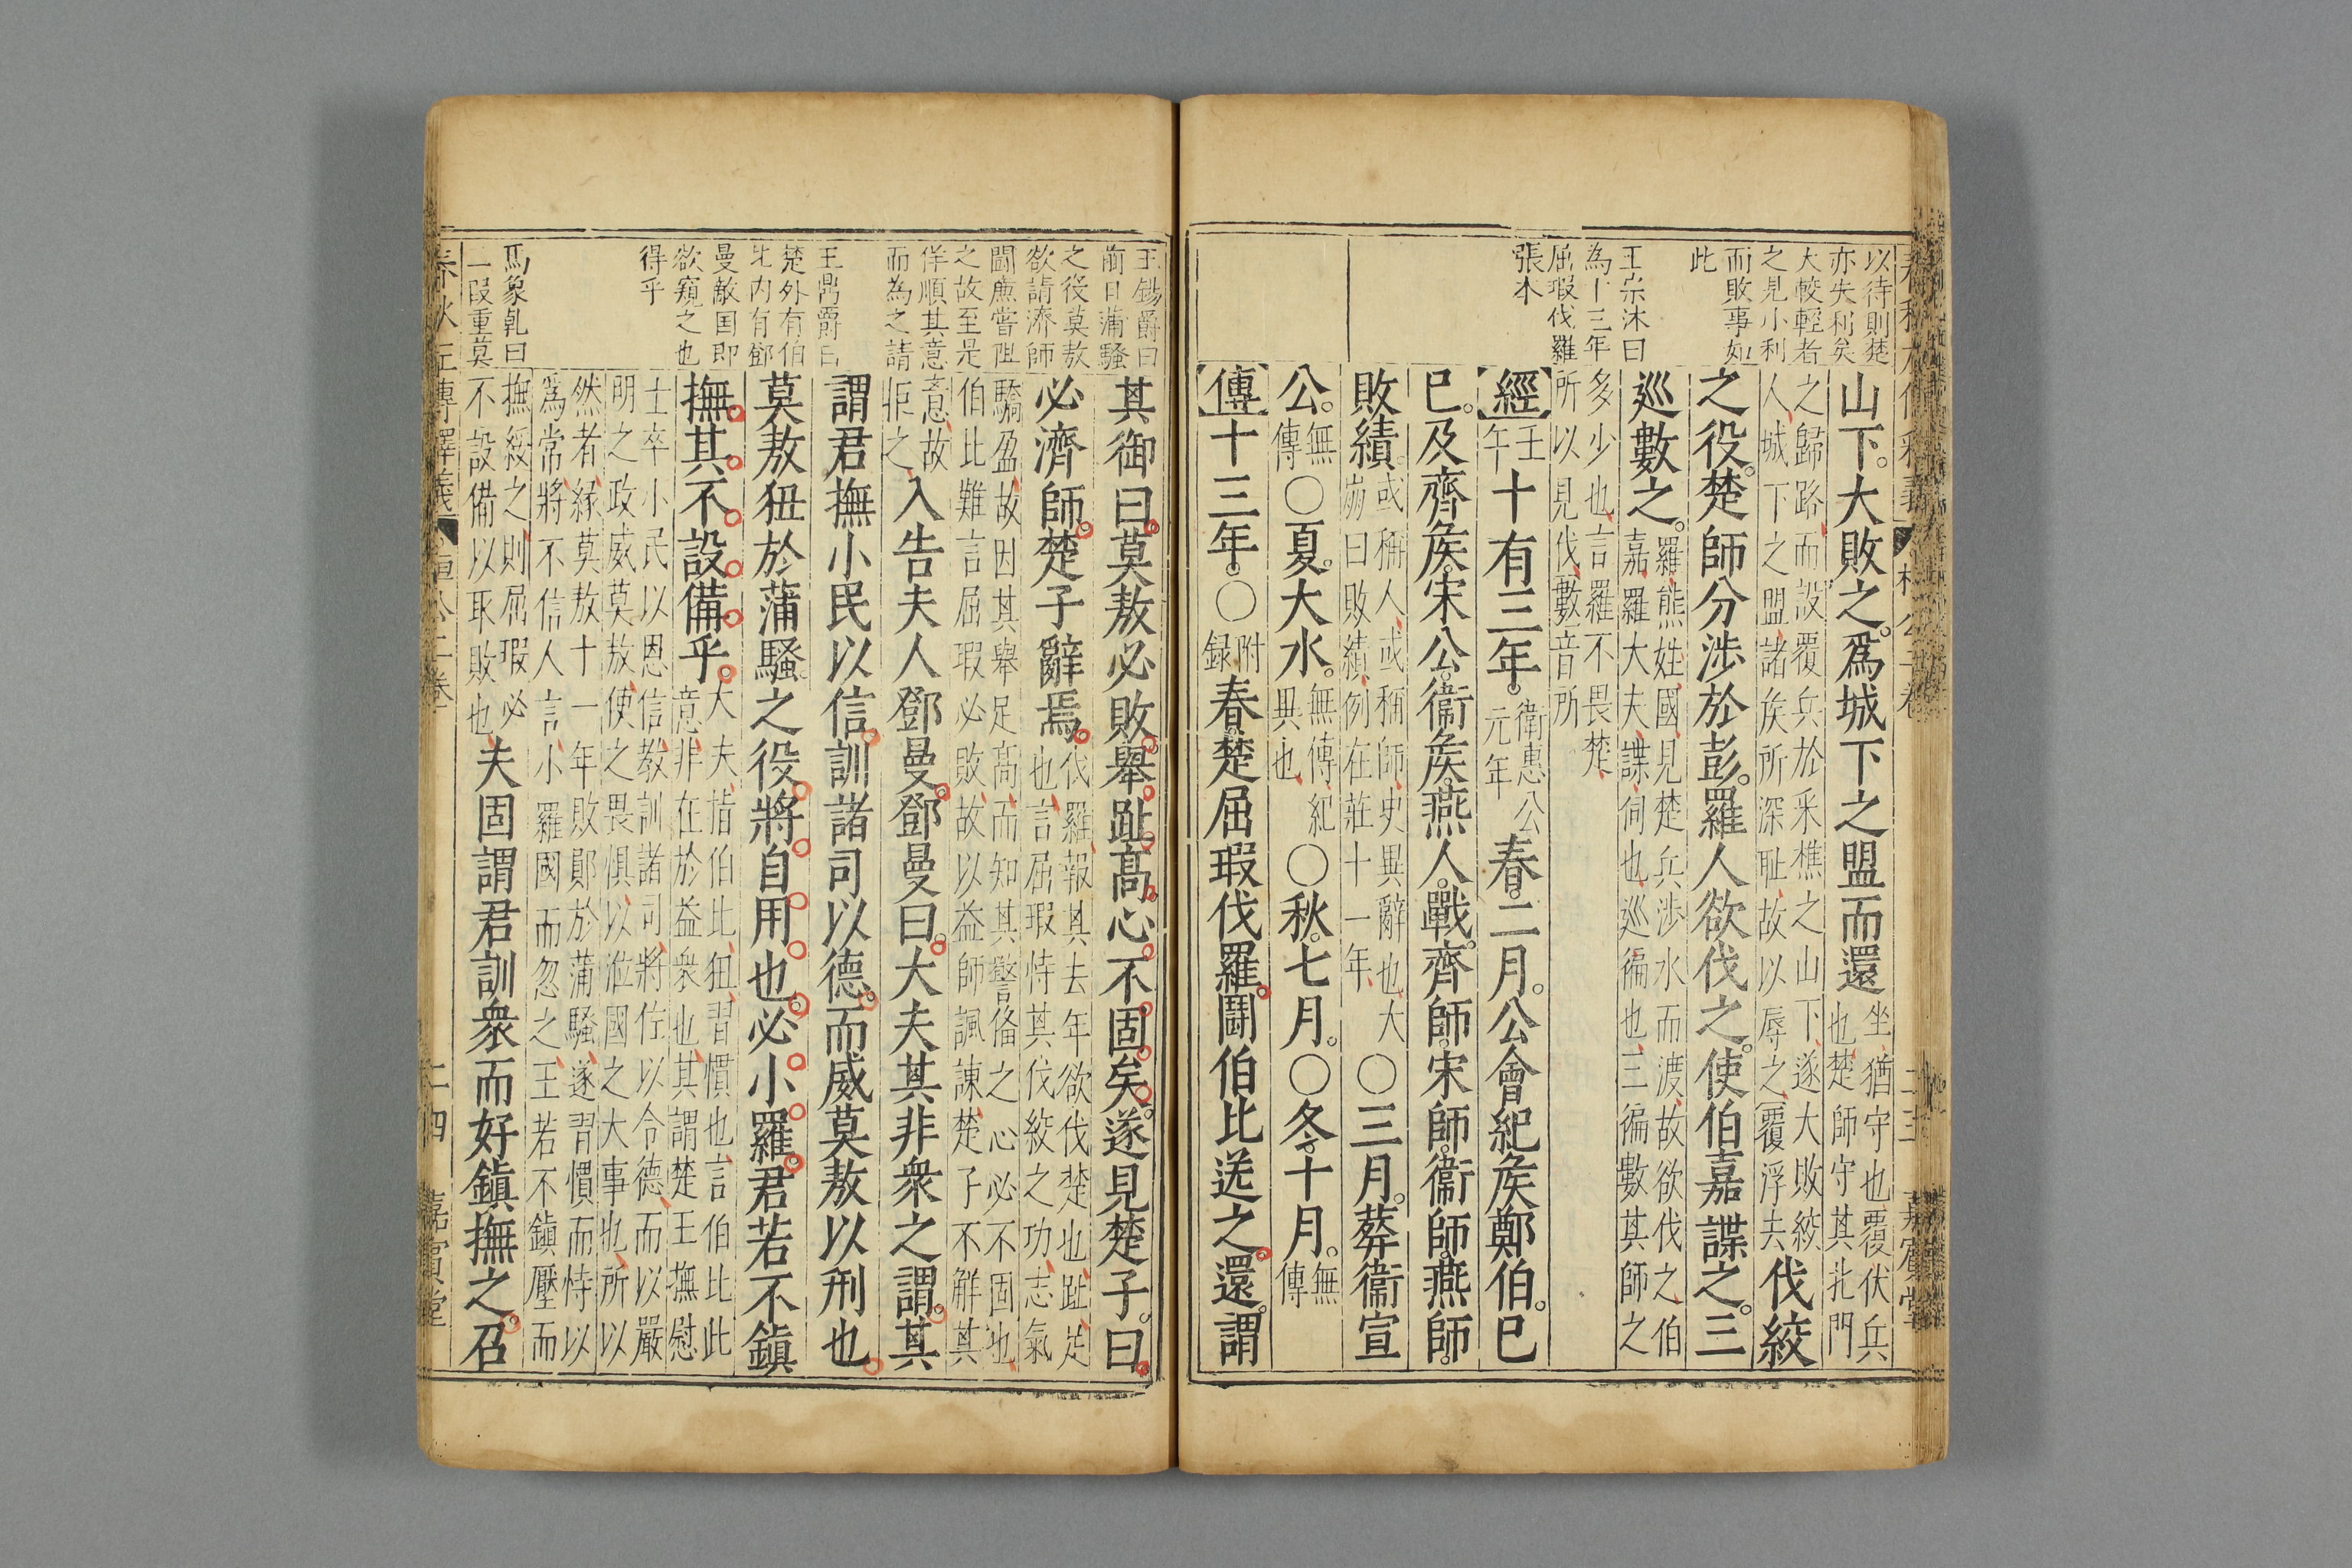 以待則楚
亦失利矣
大較輕者
之見小利
而敗事如
此
王宗沐曰
為十三年
屈瑕伐羅
張本
山下。大敗之。爲城下之盟而還
坐、猶守也、覆伏兵
也、楚師守其北門
之歸路、而設覆兵於采樵之山下、遂大敗絞
人、城下之盟、諸矦所深耻、故以辱之、覆浮去
伐絞
之役。楚師分涉於彭。羅人欲伐之。使伯嘉諜之。三
巡數之。
羅熊姓、國、見楚兵涉水而渡、故欲伐之、伯
嘉、羅大夫、諜、伺也、巡、徧也、三徧數其師之
多少也、言羅不畏楚、
所以見伐、數音所
【經】
壬
午
十有三年。
衛惠公
元年
春。二月。公會紀矦鄭伯。巳
巳。及齊矦。宋公。衞矦。燕人。戰。齊師。宋師。衞師。燕師。
敗績。
或稱人、或稱師、史異辭也、大
崩曰敗績、例在莊十一年、
○三月。葬衞宣
公。
無
傳
○夏。大水。
無傳、紀
異也、
○秋。七月。○冬。十月。
無
傳
【傳】十三年。○
附
録
春。楚屈瑕伐羅。鬭伯比送之。還。謂
王錫爵曰
前日蒲騷
之役莫敖
欲請濟師
鬬廉嘗阻
之故至是
佯順其意
而為之請
王鼎爵曰
楚外有伯
比内有鄧
曼敵国即
欲窺之也
得乎
馬象乹曰
一叚重莫
其御曰。莫敖必敗。舉趾高。心不固矣。遂見楚子。曰。
必濟師。楚子辭焉。
伐羅、報其去年欲伐楚也、趾、足
也、言屈瑕恃其伐絞之功、志氣
驕盈、故因其舉足高、而知其警俻之心必不固也、
伯比難言屈瑕必敗、故以益師諷諫、楚子不解其
意、故
拒之、
入告夫人鄧曼。鄧曼曰。大夫其非衆之謂。其
謂君撫小民以信。訓諸司以德。而威莫敖以刑也。
莫敖狃於蒲騷之役。將自用也。必小羅。君若不鎮
撫。其不設備乎。
大夫、指伯比、狃、習慣也、言伯比此
意、非在於益衆也、其謂楚王撫慰
士卒小民以恩信、教訓諸司、將佐以令德、而以嚴
明之政威莫敖、使之畏惧、以涖國之大事也、所以
然者、緣莫敖十一年敗鄖於蒲騷、遂習慣而恃以
爲常、將不信人言、小羅國而忽之、王若不鎮壓而
撫綏之、則屈瑕必
不設備以取敗也、
夫固謂君訓衆而好鎮撫之。召
二四
嘉賓堂